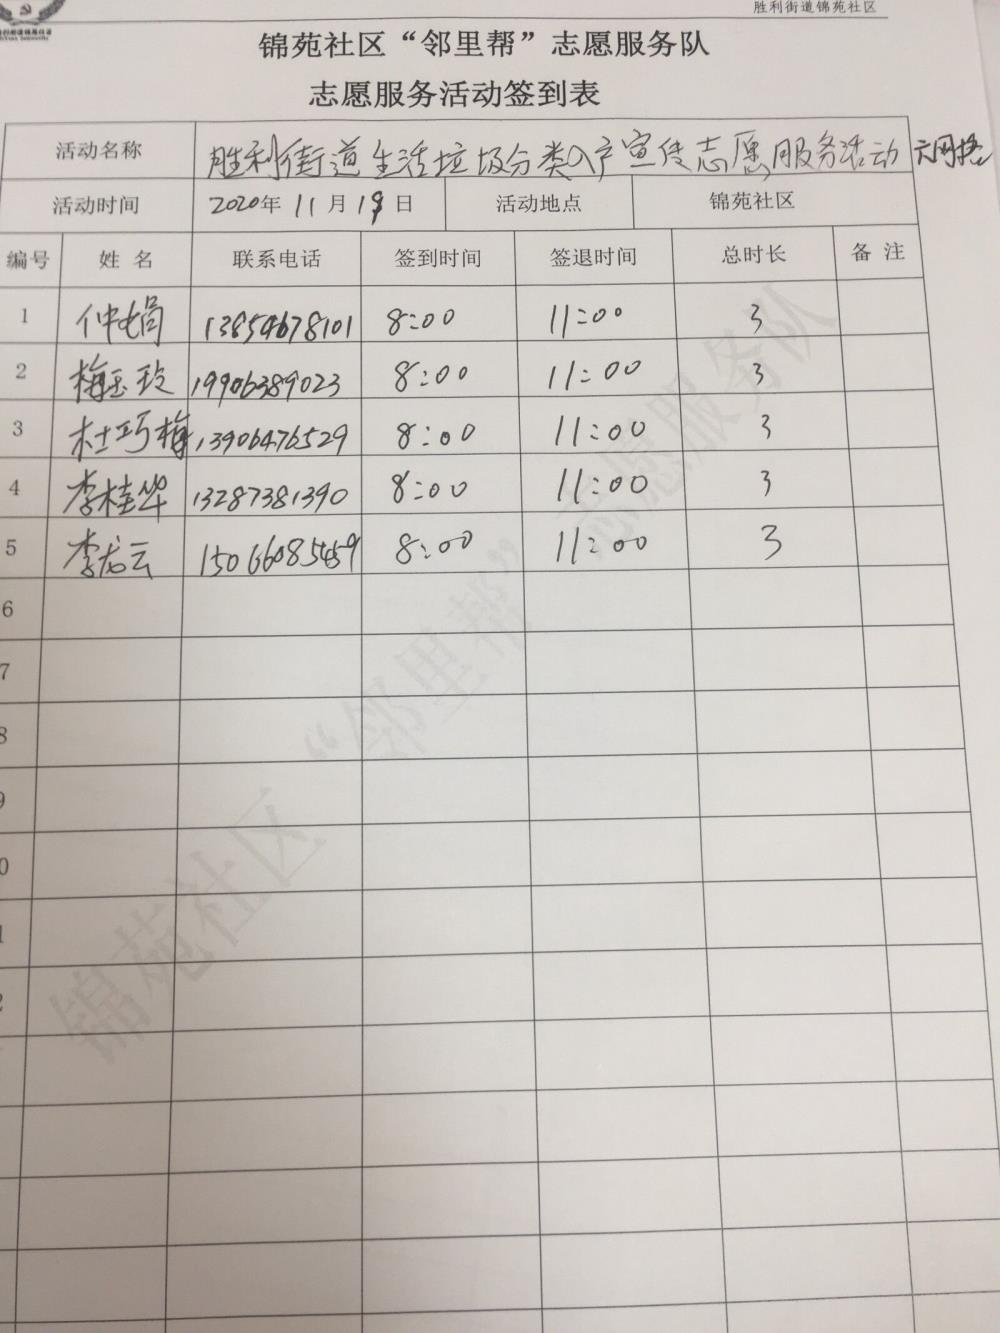 胜利街道锦苑社区
锦苑社区“邻里帮”志愿服务队
志愿服务活动签到表
活动名称 胜利街道生活垃圾分类入户宣传志愿服务活动 六网格
活动时间 2020年 11月 19日 活动地点 锦苑社区
编号 姓名 联系电话 签到时间 签退时间 总时长 备注
1 13854678101 8:00 11:00 3
2 梅玉玲 19906389023 8:00 11:00 3
3 杜巧梅 13906476529 8:00 11:00 3
4 李桂华 13287381390 8:00 11:00 3
5 李龙云 15066085459 8:00 11:00 3
6
7
8
9
0
1
2
锦苑社区“邻里帮”志愿服务队